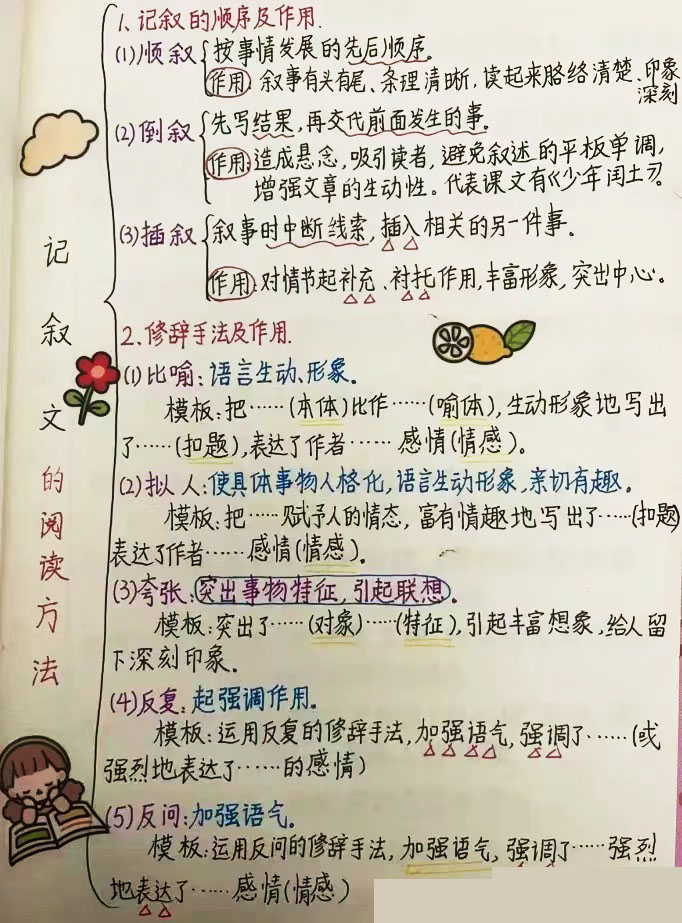 记叙文的阅读方法
1.记叙的顺序及作用.
(1)顺叙
按事情发展的先后顺序.
作用:叙事有头有尾、条理清晰,读起来脉络清楚、印象
深刻
(2)倒叙
先写结果,再交代前面发生的事。
作用:造成悬念,吸引读者,避免叙述的平板单调,
增强文章的生动性。代表课文有《少年闰土》。
(3)插叙
叙事时中断线索,插入相关的另一件事。
作用:对情节起补充、衬托作用,丰富形象,突出中心。
2.修辞手法及作用.
(1)比喻:语言生动、形象。
模板:把……(本体)比作……(喻体),生动形象地写出
了……(扣题),表达了作者……感情(情感)。
(2)拟人:使具体事物人格化,语言生动形象,亲切有趣。
模板:把……赋予人的情态,富有情趣地写出了……(扣题)
表达了作者……感情(情感)。
(3)夸张:突出事物特征,引起联想。
模板:突出了……(对象)……(特征),引起丰富想象,给人留
下深刻印象。
(4)反复:起强调作用。
模板:运用反复的修辞手法,加强语气,强调了……(或
强烈地表达了……的感情)
(5)反问:加强语气。
模板:运用反问的修辞手法,加强语气,强调了……强烈
地表达了……感情(情感)